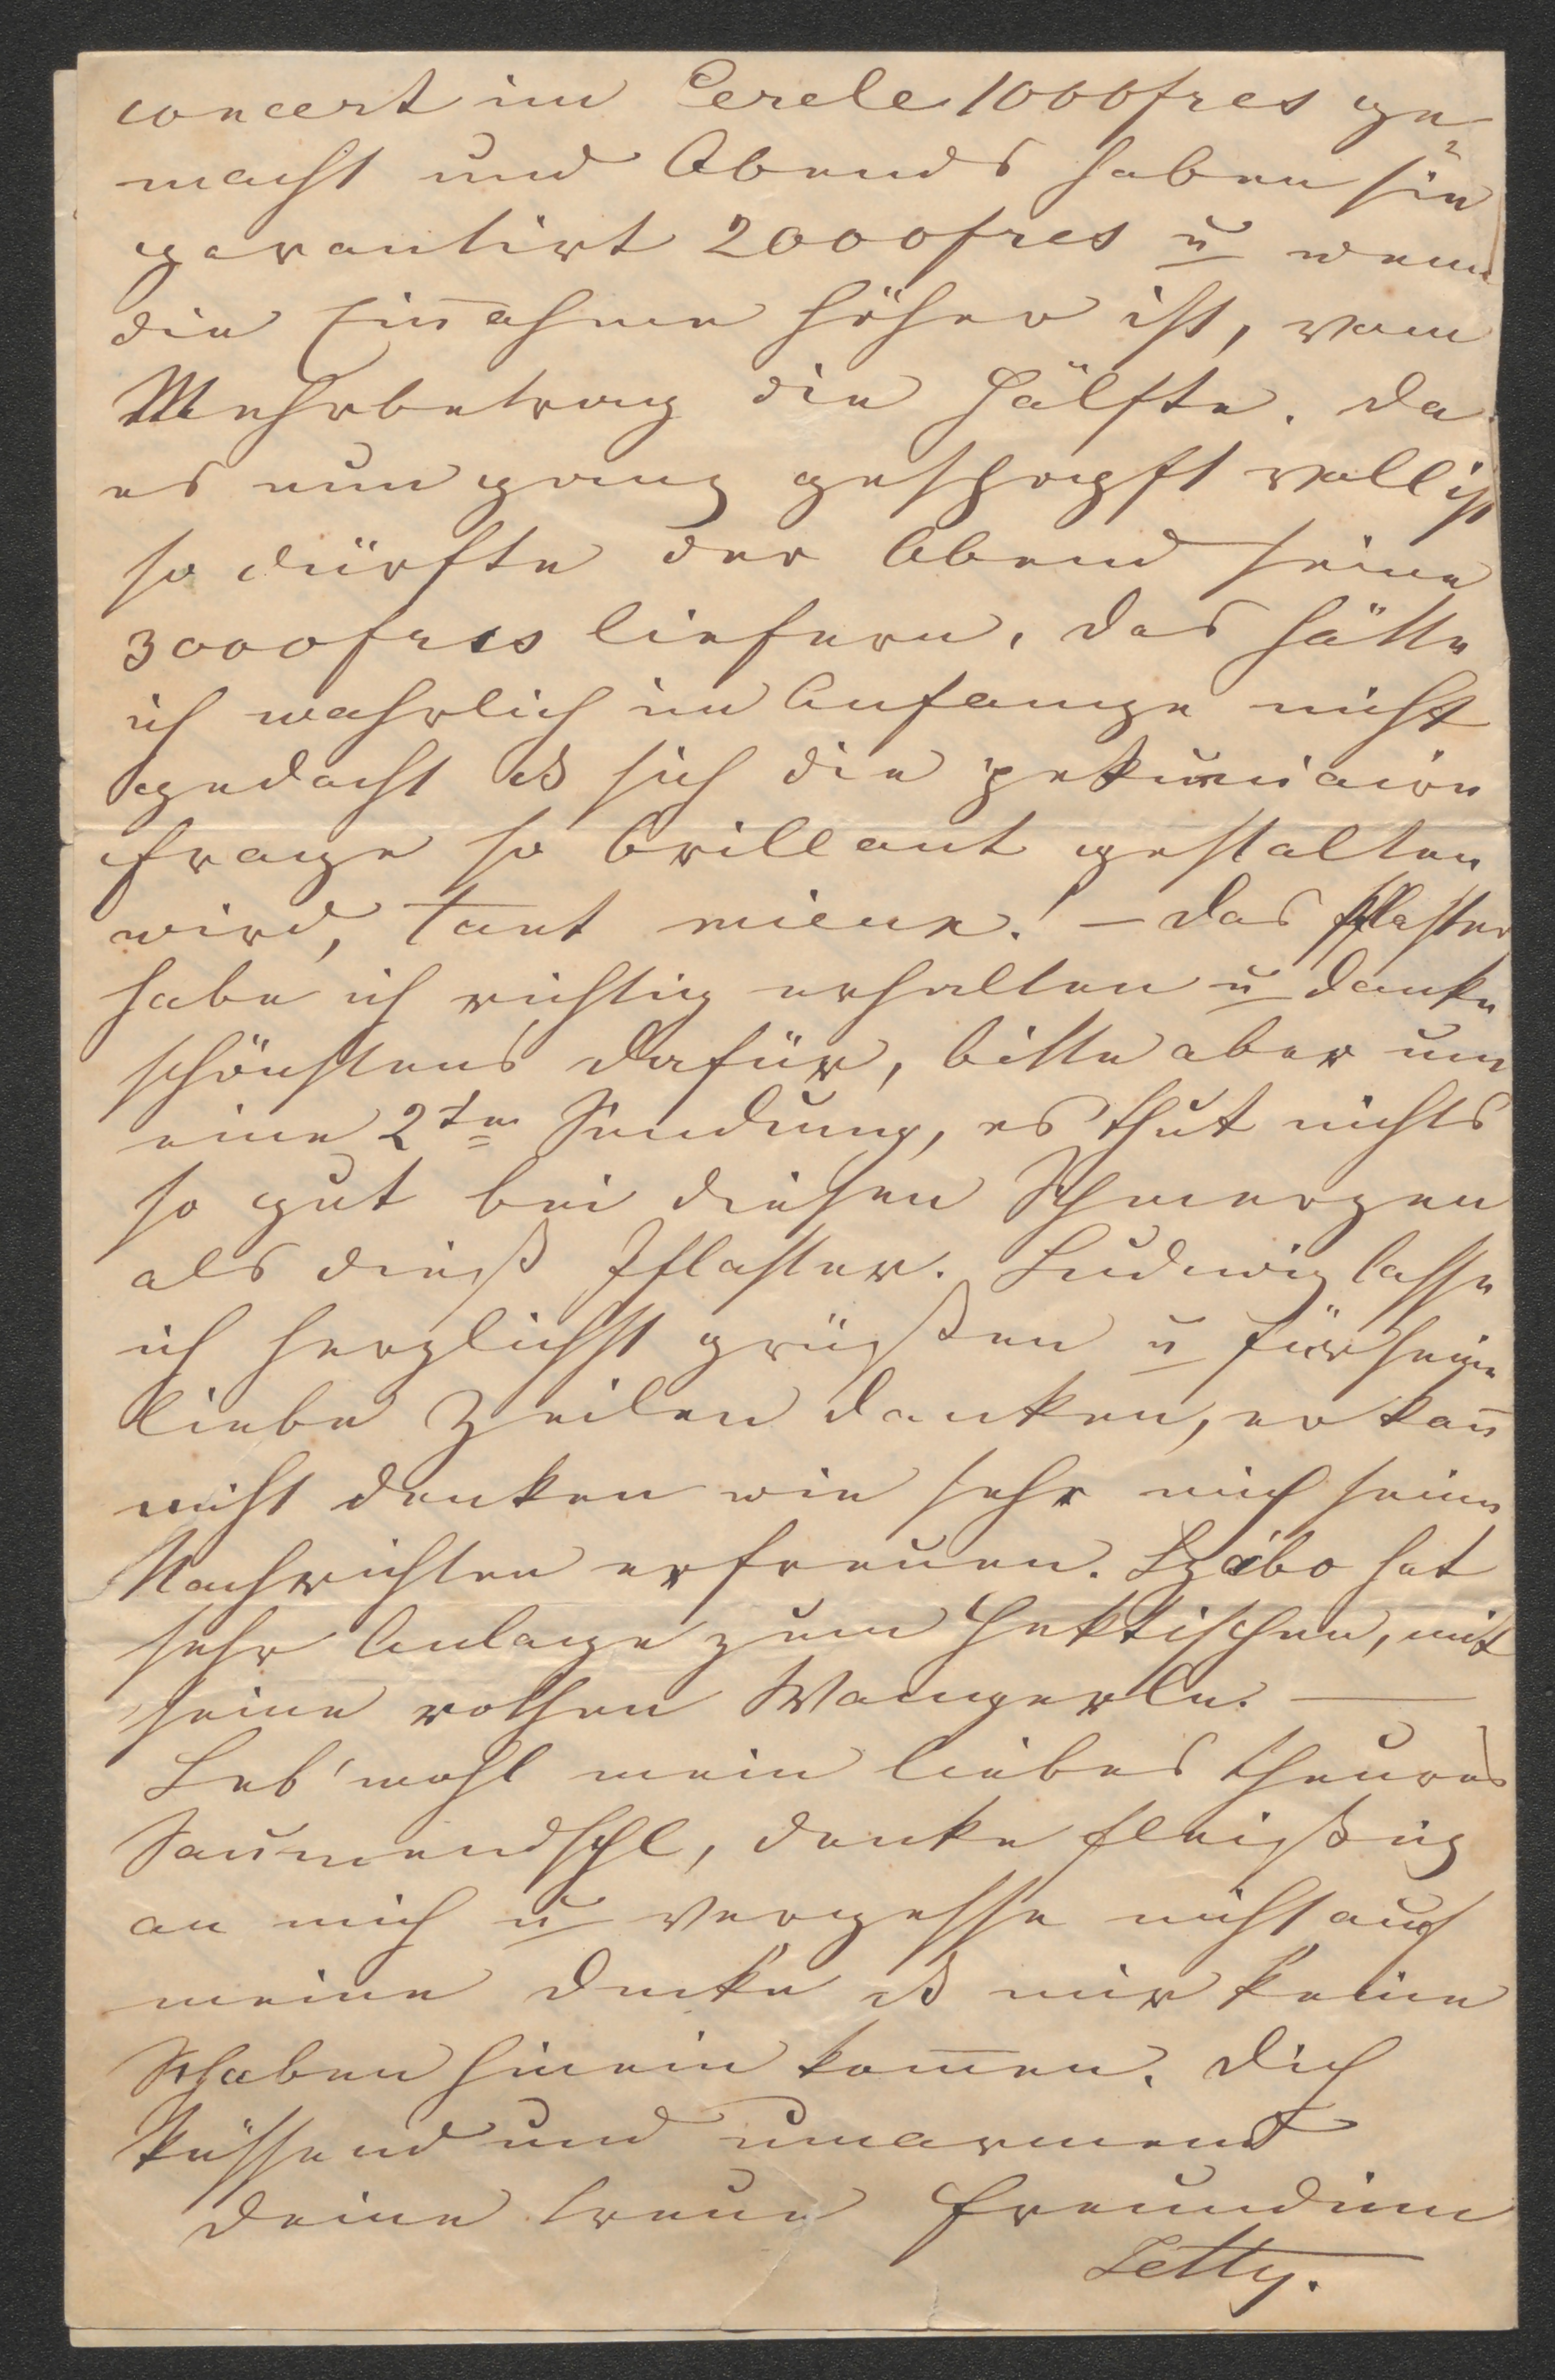 concert im Cercle 1000 frcs ge-
macht und Abends haben sie
garantirt 2000 frcs u wenn
die Einnahme höher ist, vom
Mehrbetrag die Hälfte. Da
es nun ganz gestopft voll ist
so dürfte der Abend seine
3000 frcs liefern, das hätte
ich wahrlich im Anfange nicht
gedacht daß sich die pekuniaire
Frage so brillant gestalten
wird, tant mieux! – Das Pflaster
habe ich richtig erhalten u danke
schönstens dafür, bitte aber um
eine 2te Sendung, es thut nichts
so gut bei diesen Schmerzen
als dieß Pflaster. Ludwig lasse
ich herzlichst grüßen u für seine
liebe Zeilen danken, er kan̄
nicht denken wie sehr mich seine
Nachrichten erfreuen. Szabo hat
sehr Anlage zum Hektischen, mit
seine rothen Wangerln. —
Leb' wohl mein liebes theures
denke fleißig
an mich u vergesse nicht auf
meine Decke daß mir keine
Schaben hinein kom̄en. Dich
küssend und umarmend
Deine treue Freundinn
Letty.